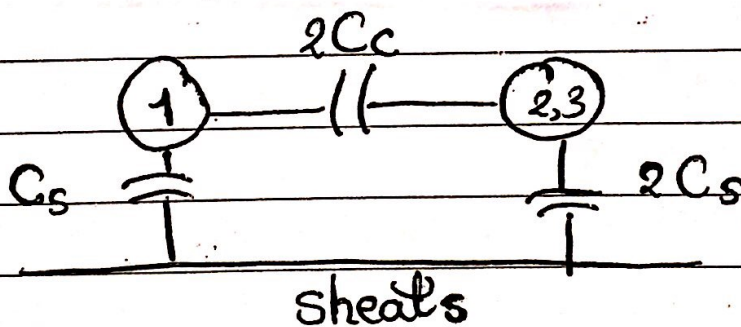 2Cc
1 2,3
Cs 2Cs
Sheats